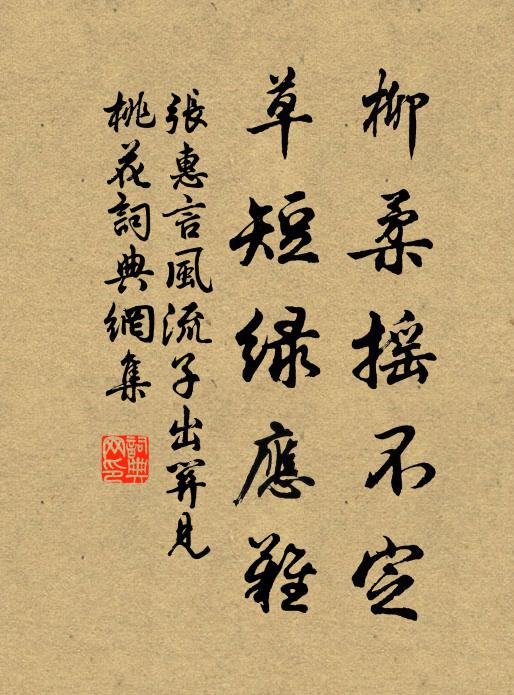 柳柔摇不定
草短绿應難
張惠言風流子出關見
桃花詞典網集
詞典網印